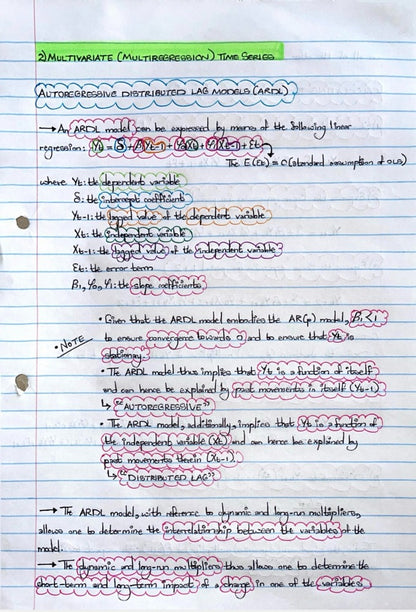 2) MULTIVARIATE (MULTIREGRESSION) TIME SERIES
AUTOREGRESSIVE DISTRIBUTED LAG MODELS (ARDL)
→ An ARDL model can be expressed by means of the following linear
regression: Yt = δ + β1Yt-1 + γ0Xt + γ1Xt-1 + Et
The E(Et) = 0 (standard assumption of OLS)
where Yt: the dependent variable
δ: the intercept coefficient
Yt-1: the lagged value of the dependent variable
Xt: the independent variable
Xt-1: the lagged value of the independent variable
Et: the error term
β1, γ0, γ1: the slope coefficients
• Given that the ARDL model embodies the AR(p) model, β1 < 1
• NOTE
to ensure convergence towards 0 and to ensure that Yt is
stationary.
• The ARDL model thus implies that Yt is a function of itself
and can hence be explained by past movements in itself (Yt-1)
↳ "AUTOREGRESSIVE"
• The ARDL model, additionally, implies that Yt is a function of
the independent variable (Xt) and can hence be explained by
past movements therein (Xt-1).
↳ "DISTRIBUTED LAG"
→ The ARDL model, with reference to dynamic and long-run multipliers,
allows one to determine the interrelationship between the variables of the
model.
→ The dynamic and long-run multipliers thus allows one to determine the
short-term and long-term impact of a change in one of the variables